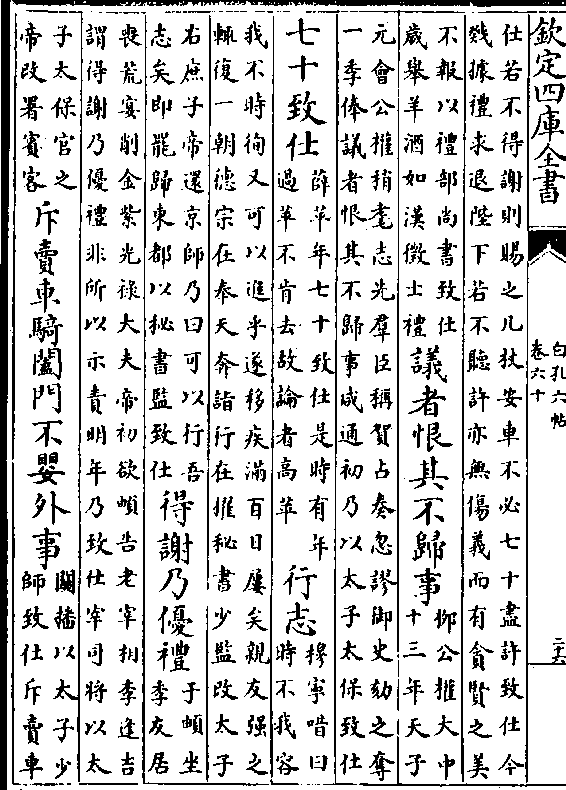 欽定四庫全書
白孔六帖
卷六十
二十六
仕若不得謝則賜之几杖安車不必七十盡許致仕今
幾據禮求退陛下若不聽許亦無傷義而有貪賢之美
不報以禮部尚書致仕
歲舉羊酒如漢徵士禮
議者恨其不歸事
柳公權大中
十三年天子
元會公權稍耄志先羣臣稱賀占奏忽謬御史劾之奪
一季俸議者恨其不歸事咸通初乃以太子太保致仕
七十致仕
薛苹年七十致仕是時有年
過苹不肯去故論者高苹
行志
穆寧唶曰
時不我容
我不時徇又可以進乎遂移疾滿百日屢矣親友强之
輒復一朝德宗在奉天奔詣行在擢秘書少監改太子
右庶子帝還京師乃曰可以行吾
志矣即罷歸東都以秘書監致仕
得謝乃優禮
于頔坐
季友居
喪荒宴削金紫光祿大夫帝初欲頔告老宰相李逢吉
謂得謝乃優禮非所以示責明年乃致仕宰司將以太
子太保官之
帝改署賓客
斥賣車騎闔門不嬰外事
關播以太子少
師致仕斥賣車